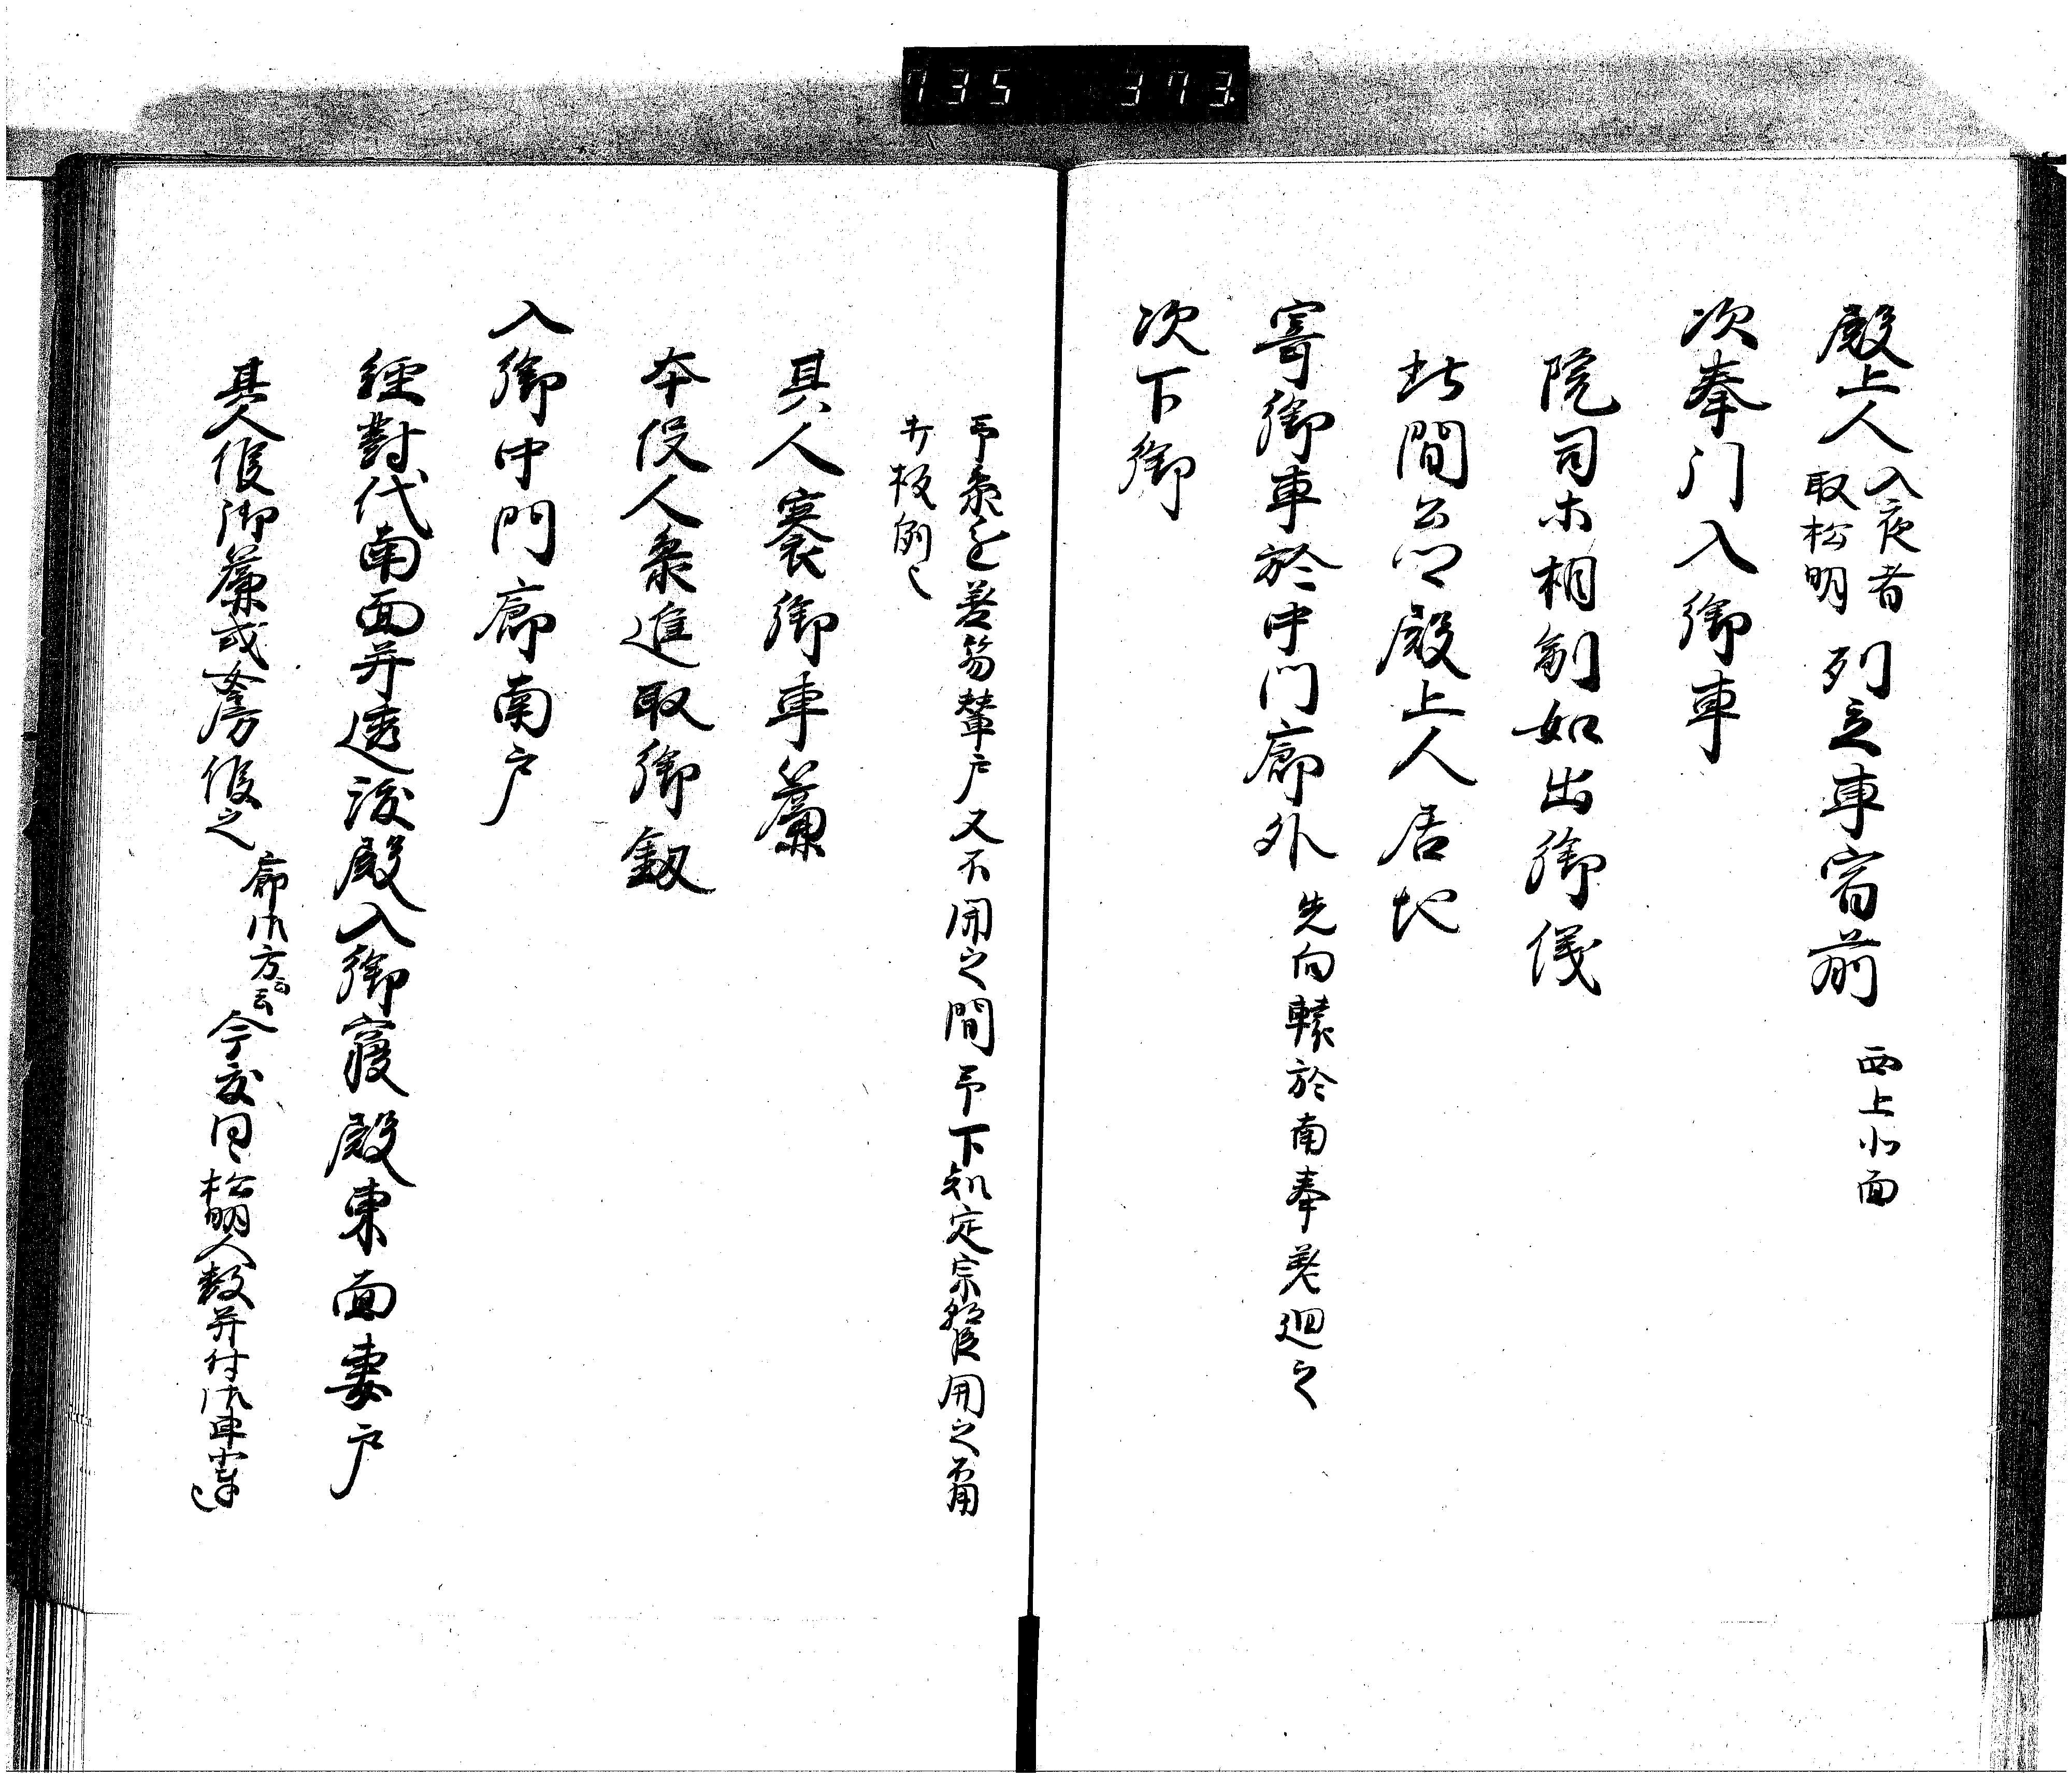 735 373
殿上人入夜者取松明列立車宿前 西上北面
次奉門入御車
院司等相副如出御儀
此間公卿殿上人居地
寄御車於中門廊外 先向轅於南奉差廻之
次下御
予参進著笏 戸又不開之間予下知定宗朝臣開之
打板例也
其人褰御車簾
本役人参進取御釼
入御中門廊南戸
経對代南面并透渡殿入御寝殿東面妻戸
其人候御簾或女房候之 廊御方云々今度同 松明人数并付御車